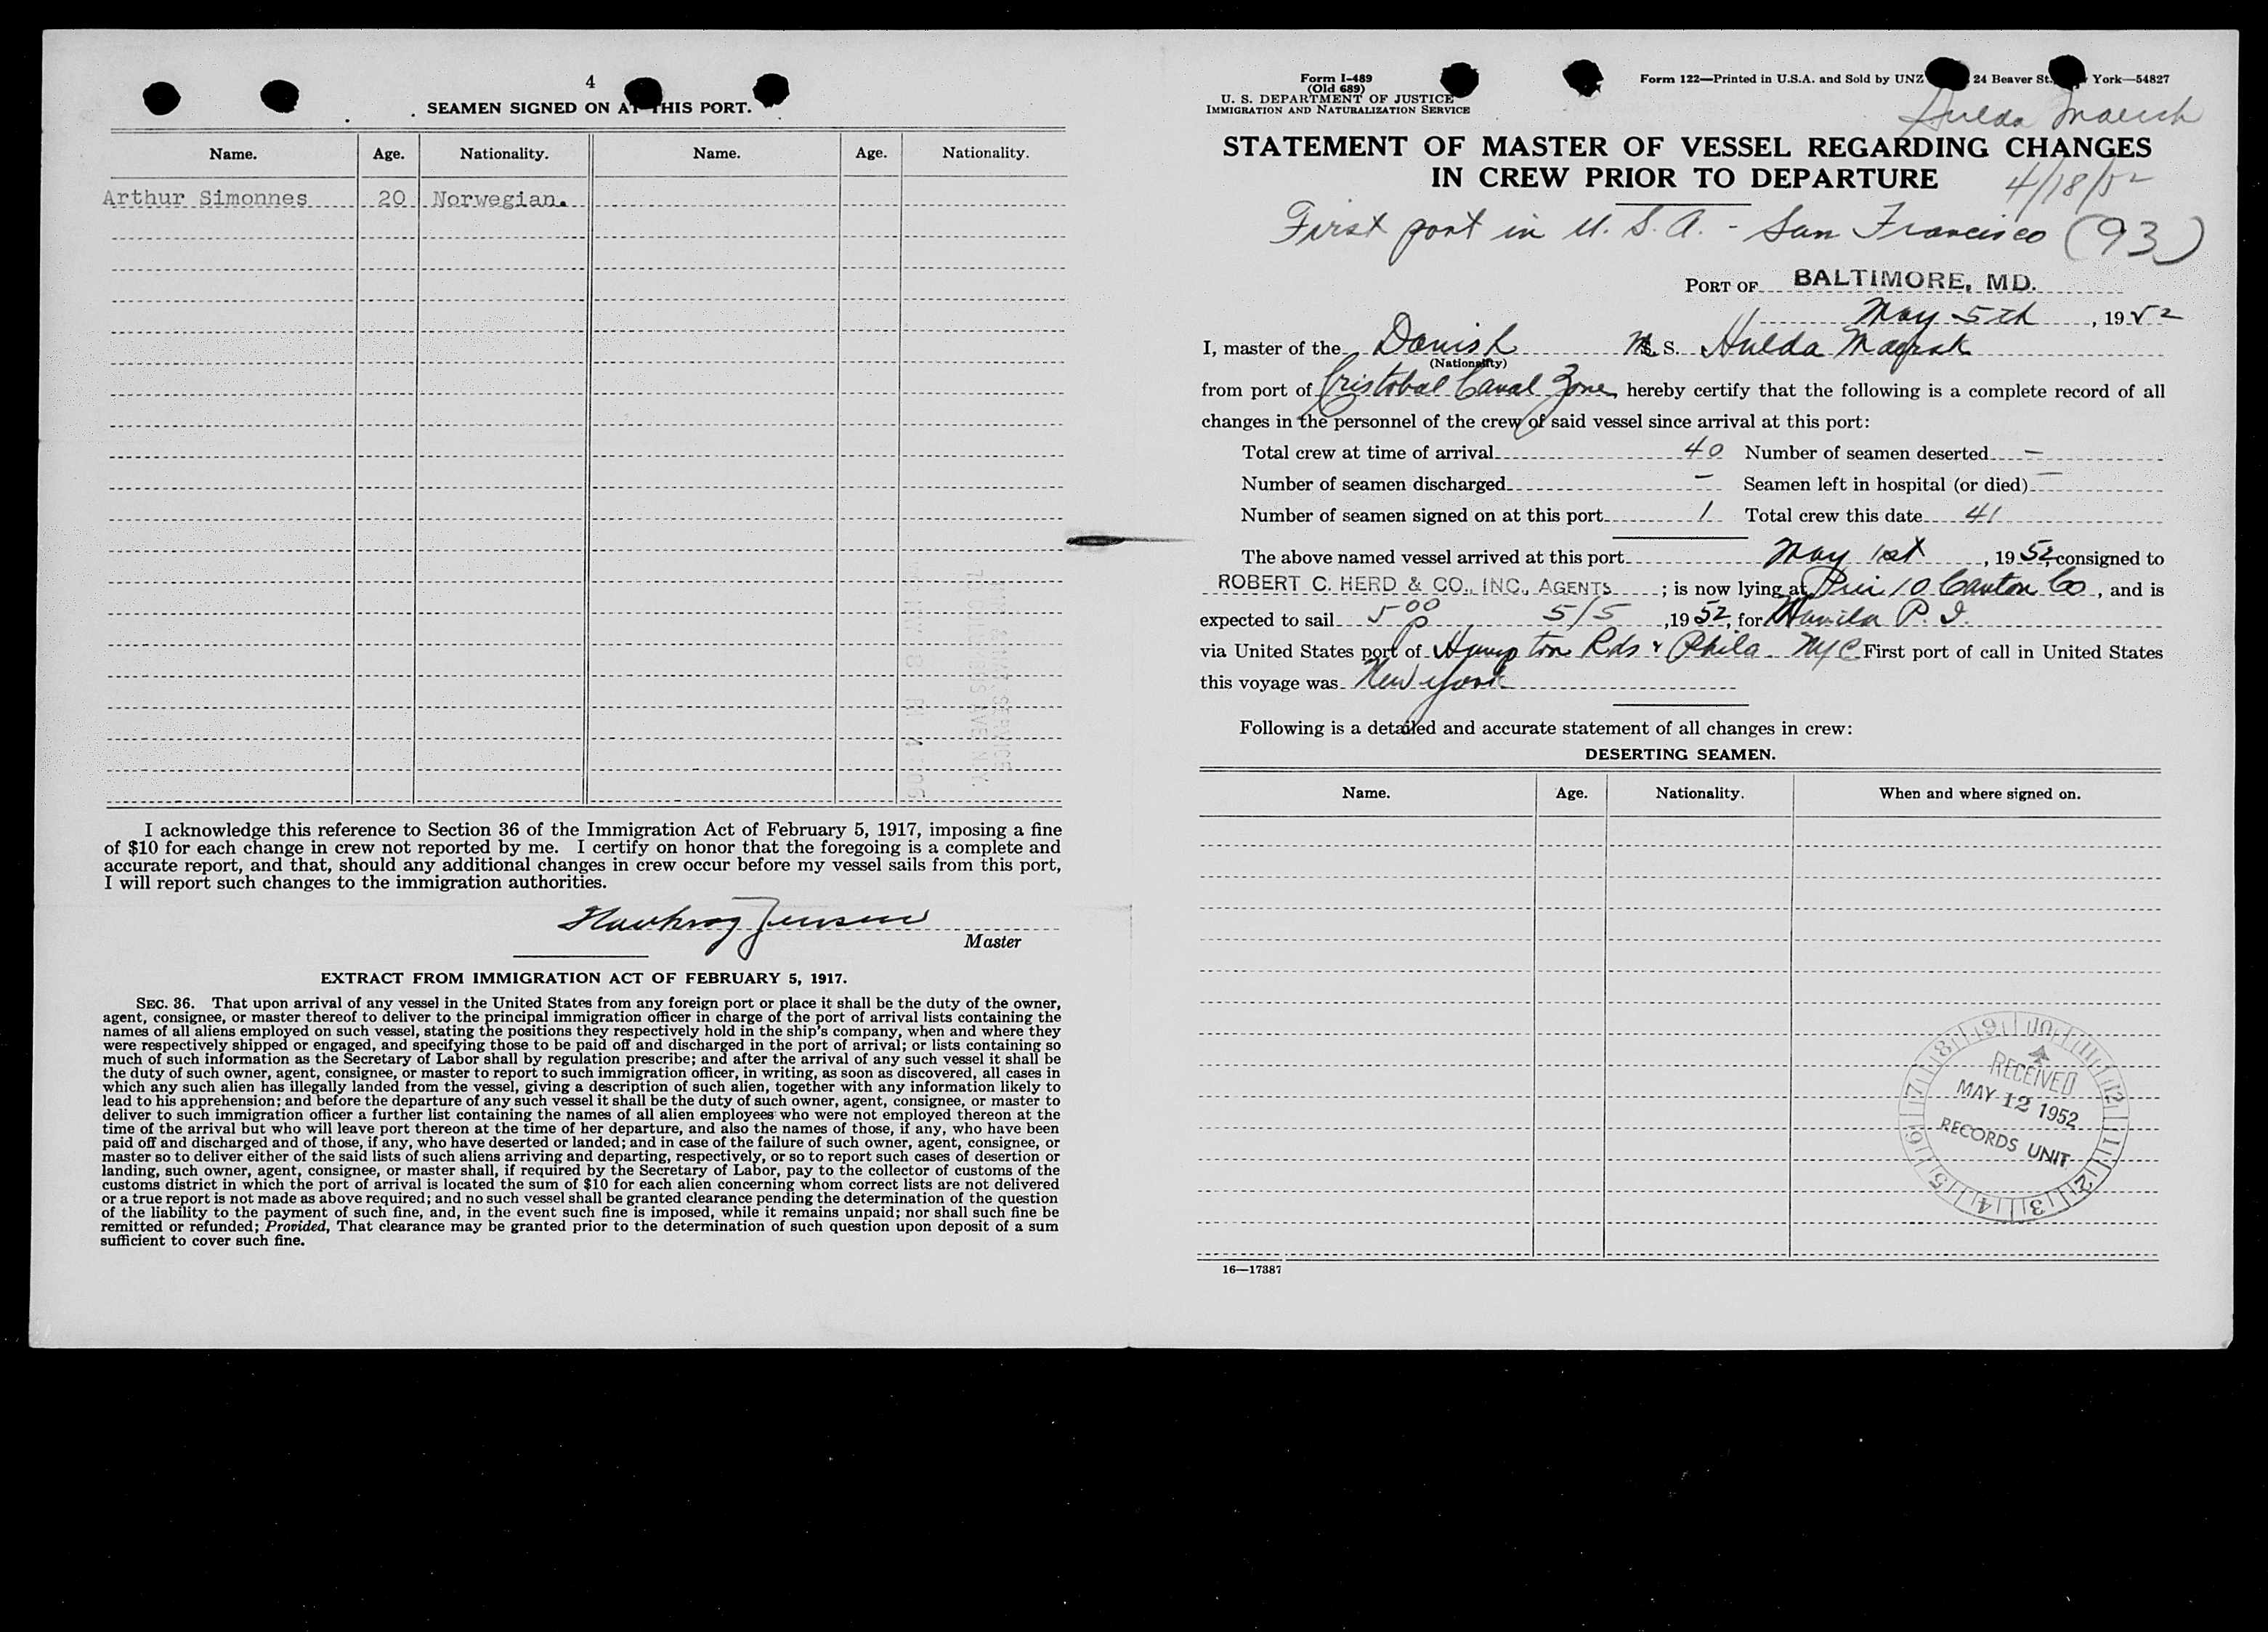 4
SEAMEN SIGNED ON AT THIS PORT.
Name. Age. Nationality. Name. Age. Nationality.
Arthur Simonnes 20 Norwegian.
I acknowledge this reference to Section 36 of the Immigration Act of February 5, 1917, imposing a fine
of $10 for each change in crew not reported by me. I certify on honor that the foregoing is a complete and
accurate report, and that, should any additional changes in crew occur before my vessel sails from this port,
I will report such changes to the immigration authorities.
Jensen
Master
EXTRACT FROM IMMIGRATION ACT OF FEBRUARY 5, 1917.
SEC. 36. That upon arrival of any vessel in the United States from any foreign port or place it shall be the duty of the owner,
agent, consignee, or master thereof to deliver to the principal immigration officer in charge of the port of arrival lists containing the
names of all aliens employed on such vessel, stating the positions they respectively hold in the ship's company, when and where they
were respectively shipped or engaged, and specifying those to be paid off and discharged in the port of arrival; or lists containing so
much of such information as the Secretary of Labor shall by regulation prescribe; and after the arrival of any such vessel it shall be
the duty of such owner, agent, consignee, or master to report to such immigration officer, in writing, as soon as discovered, all cases in
which any such alien has illegally landed from the vessel, giving a description of such alien, together with any information likely to
lead to his apprehension; and before the departure of any such vessel it shall be the duty of such owner, agent, consignee, or master to
deliver to such immigration officer a further list containing the names of all alien employees who were not employed thereon at the
time of the arrival but who will leave port thereon at the time of her departure, and also the names of those, if any, who have been
paid off and discharged and of those, if any, who have deserted or landed; and in case of the failure of such owner, agent, consignee, or
master so to deliver either of the said lists of such aliens arriving and departing, respectively, or so to report such cases of desertion or
landing, such owner, agent, consignee, or master shall, if required by the Secretary of Labor, pay to the collector of customs of the
customs district in which the port of arrival is located the sum of $10 for each alien concerning whom correct lists are not delivered
or a true report is not made as above required; and no such vessel shall be granted clearance pending the determination of the question
of the liability to the payment of such fine, and, in the event such fine is imposed, while it remains unpaid; nor shall such fine be
remitted or refunded; Provided, That clearance may be granted prior to the determination of such question upon deposit of a sum
sufficient to cover such fine.
Form I-489
(Old 689)
U. S. DEPARTMENT OF JUSTICE
IMMIGRATION AND NATURALIZATION SERVICE
Form 122—Printed in U.S.A. and Sold by UNZ 24 Beaver St. York—54827
Hulda Maersk
STATEMENT OF MASTER OF VESSEL REGARDING CHANGES
IN CREW PRIOR TO DEPARTURE
4/18/52
First port in U.S.A. - San Francisco (93)
PORT OF BALTIMORE, MD.
May 5th, 1952
I, master of the Danish M. S. Hulda Maersk
(Nationality)
from port of Cristobal Canal Zone, hereby certify that the following is a complete record of all
changes in the personnel of the crew of said vessel since arrival at this port:
Total crew at time of arrival 40 Number of seamen deserted —
Number of seamen discharged — Seamen left in hospital (or died) —
Number of seamen signed on at this port 1 Total crew this date 41
The above named vessel arrived at this port May 1st, 1952, consigned to
ROBERT C. HERD & CO., INC., AGENTS; is now lying at Pier 10 Canton Co, and is
expected to sail 5 00 P 5/5, 1952, for Manila P. I.
via United States port of Hampton Rds & Phila - NYC First port of call in United States
this voyage was New York
Following is a detailed and accurate statement of all changes in crew:
DESERTING SEAMEN.
Name. Age. Nationality. When and where signed on.
RECEIVED
MAY 12 1952
RECORDS UNIT
9 10 11 12 1 2 3 4 5 6 7 8
16—17387